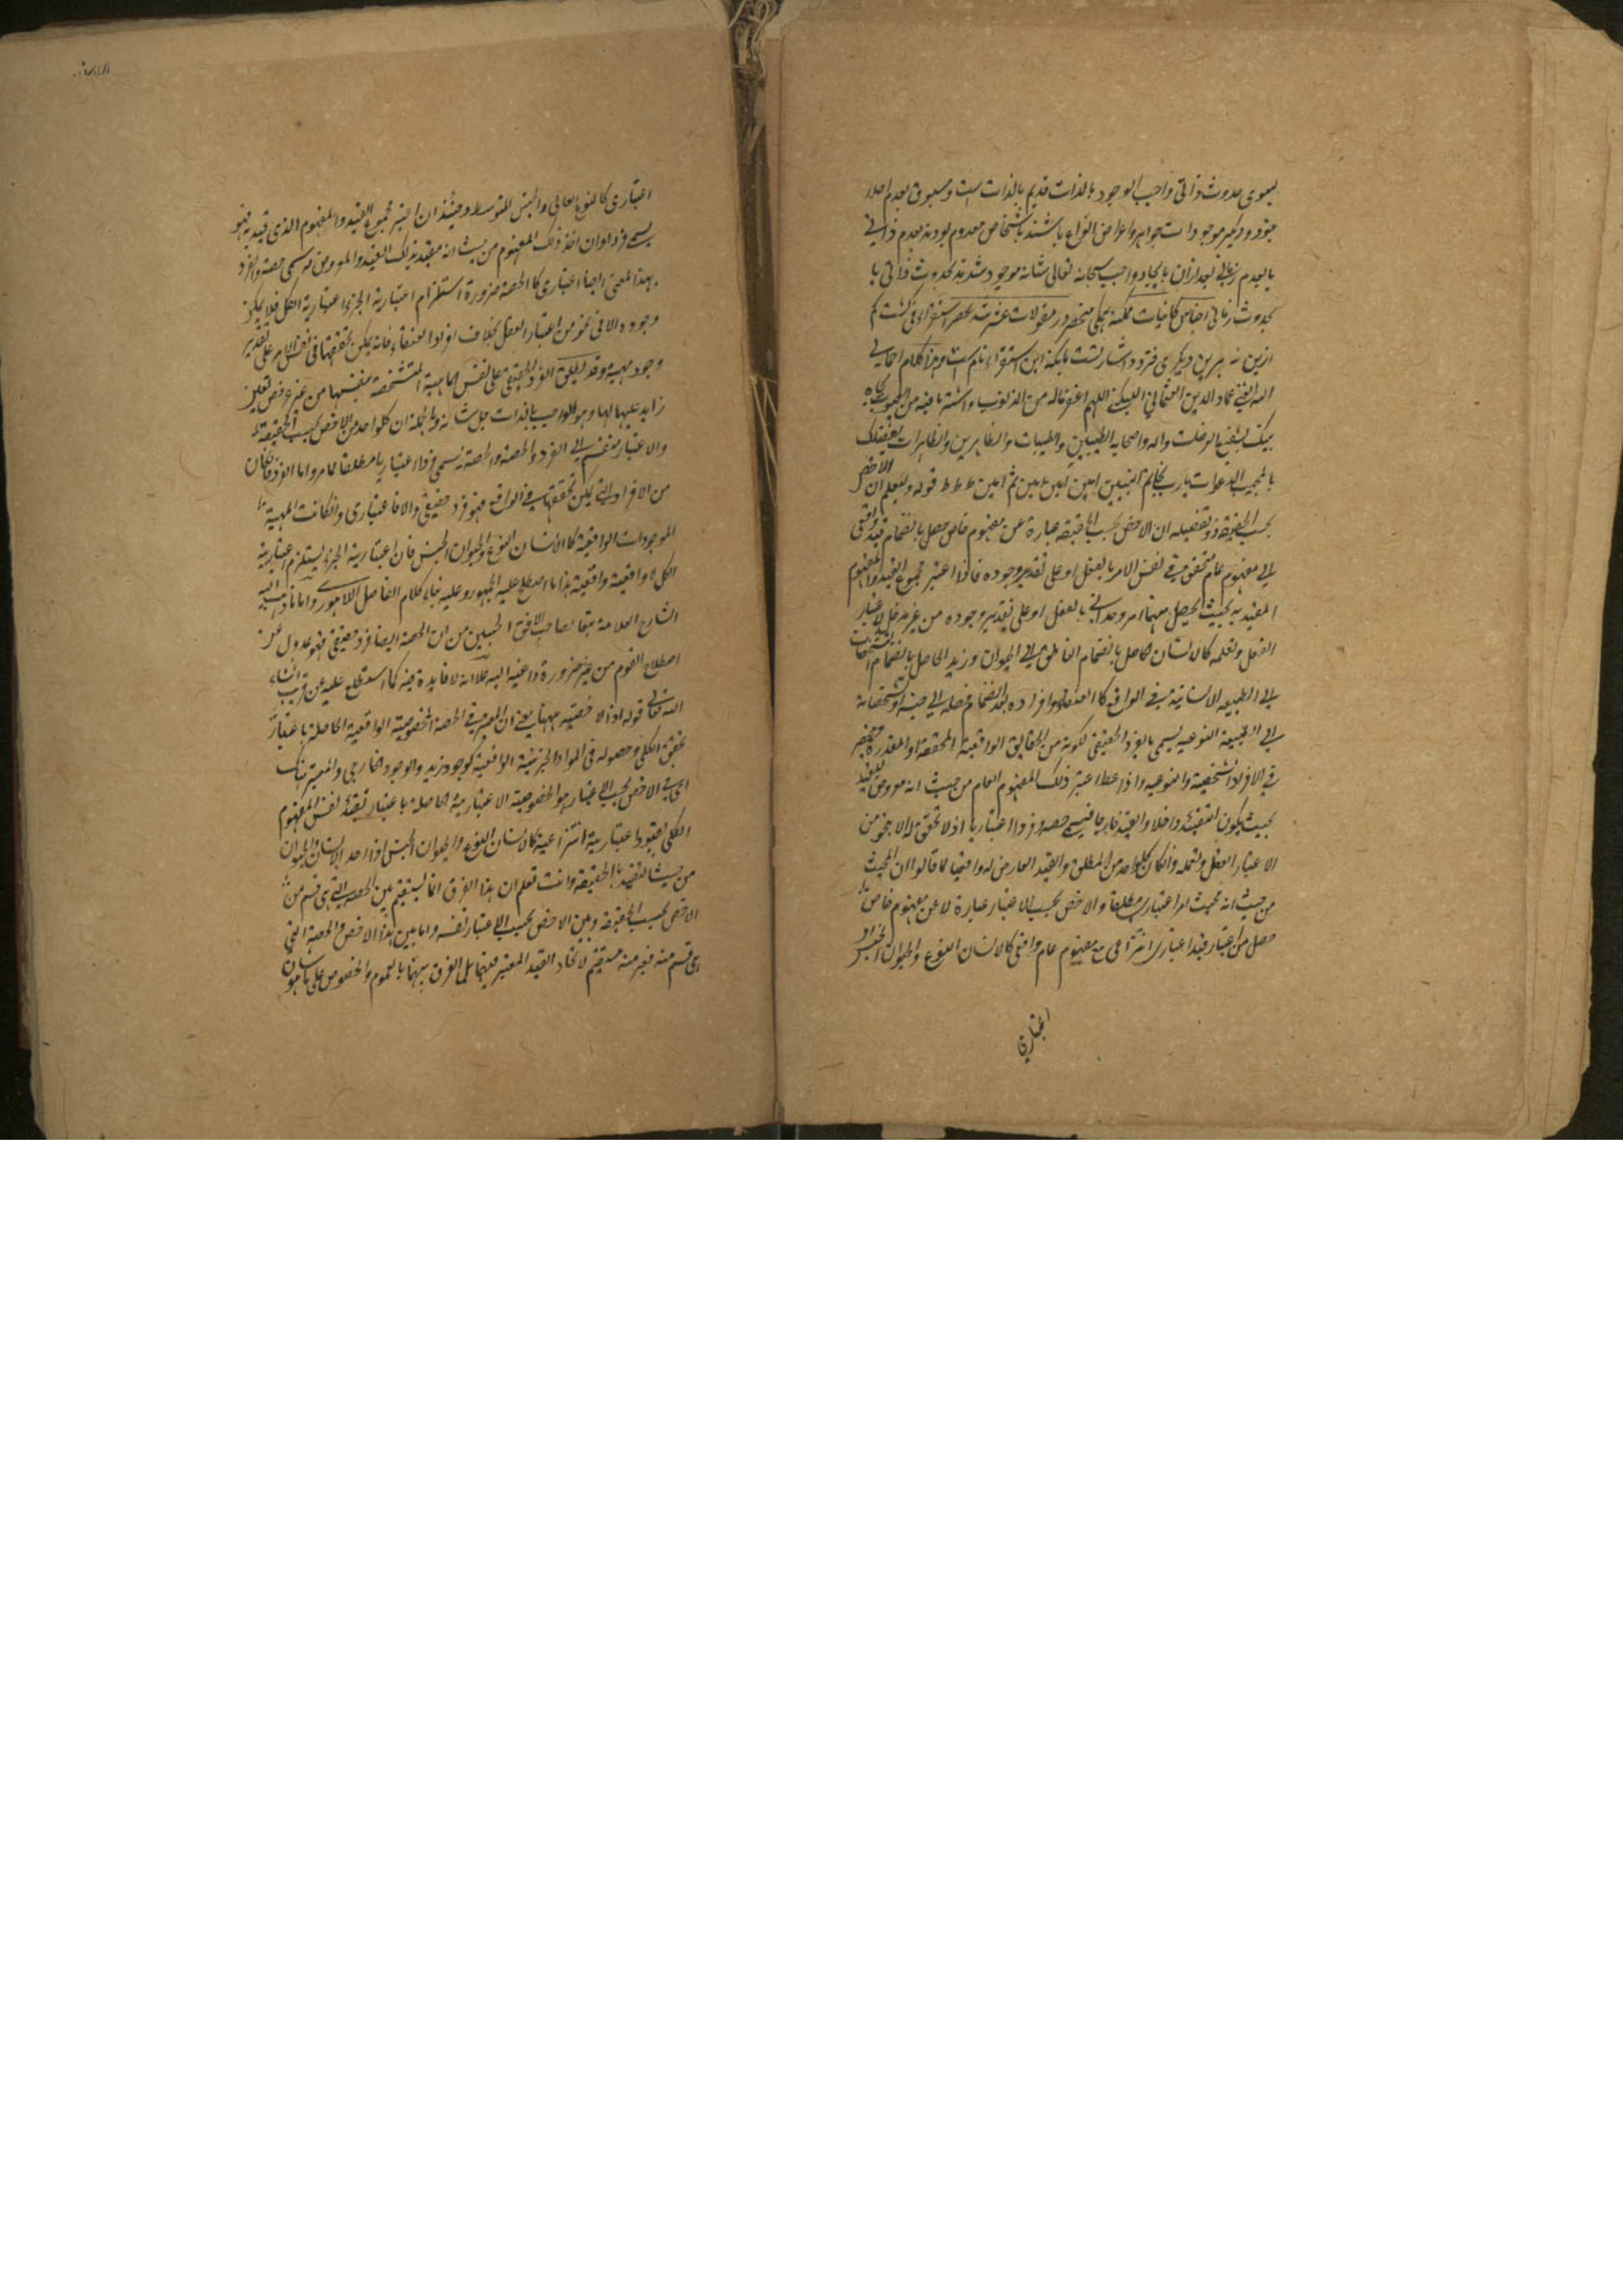 بسوی حدوث ذاتی واجب الوجود بالذات قدیم بالذات است و مسبوق بعدم اصلا
و دیگر موجودات جواهر و اعراض انواع باشند یا شخاص معدوم بودند بعدم ذاتی
یا بعدم زمانی بعد ازان بایجاد واجب سبحانه تعالی شانه موجود شدند بحدوث ذاتی یا
بحدوث زمانی اجناس کائنات ممکنه همگی منحصر در مقولات عشرت بحصر استقراء
ازین نه بلکه این استقراء تام است هذا کلام
عماد الدین العثمانی اللبکنی اللهم اغفر ماله من الذنوب واستر ما فیه من العیوب بجاه
واله واصحابه الطیبین والطیبات والطاهرین والطاهرات بفضلک
یا مجیب الدعوات یارب بخاتم النبیین امین امین امین ثم امین ط ط ط قوله ولیعلم ان الاخص
بحسب الحقیقة وتفصیله ان الاخص بحسب الحقیقة عبارة عن مفهوم خاص حصل بانضمام قید واقعی
الی مفهوم عام متحقق فی نفس الامر بالفعل او علی تقدیر وجوده فاذا اعتبر مجموع القید والمفهوم
المقید به بحیث یحصل منهما امر وحدانی بالفعل او علی تقدیر وجوده من غیر مدخل لاعتبار
العقل وتعمله کالانسان الحاصل بانضمام الناطق الی الحیوان وزید الحاصل بانضمام التشخصات
الی الطبیعة الانسانیة فی الواقع کالعنقاء وافراده بعد انضمام فصله الی جنسه وتشخصاته
الی الطبیعة النوعیة یسمی بالفرد الحقیقی لکونه من الحقایق الواقعیة المحققة او المقدرة وینحصر
فی الافراد الشخصیة والنوعیة واذا اعتبر ذلک المفهوم العام من حیث انه معروض للقید
بحیث یکون التقیید داخلا والقید خارجا فیسمی حصة وفردا اعتباریا اذ لا تحقق له الا بنحو من
الاعتبار العقل وتعمله وان کان کل واحد من المطلق والقید العارض له واقعیا لما قالوا ان الحیث
من حیث انه محیث امر اعتباری مطلقا والاخص بحسب الاعتبار عبارة عن مفهوم خاص
حصل من اعتبار قید اعتباری انتزاعی مع مفهوم عام واقعی کالانسان النوع والحیوان الجنس او
اعتباری
اعتباری کالنوع العالی والجنس المتوسط وحینئذ ان اعتبر مجموع القید والمفهوم الذی قید به فهو
یسمی فردا وان اخذ ذلک المفهوم من حیث انه مقید بذلک القید والمعروض له سمی حصة والفرد
بهذا المعنی ایضا اعتباری کالحصة ضرورة استلزام اعتباریة الجزء اعتباریة الکل فلا یکون
وجوده الا فی نحو من اعتبار العقل بخلاف افراد العنقاء فانه یمکن تحققها فی نفس الامر علی تقدیر
وجود مهیته وقد یطلق الفرد الحقیقی علی نفس الماهیة المتشخصة بنفسها من غیر عروض تعین
زاید علیها لها وهو الواجب بالذات جل شانه وبالجملة ان کلا واحد من الاخص بحسب الحقیقة
والاعتبار منقسم الی الفرد والحصة والحصة تسمی فردا اعتباریا مطلقا لما مر واما الفرد فان کان
من الافراد التی یمکن تحققها فی الواقع فهو فرد حقیقی والا فاعتباری وان کانت المهیة
الموجودات الواقعیة کالانسان النوع والحیوان الجنس فان اعتباریة الجزء یستلزم اعتباریة
الکل لا واقعیته واقعیته هذا ما اصطلح علیه الجمهور وعلیه بناء کلام الفاضل اللاهوری واما ما ذهب الیه
الشارح العلامة تبعا لصاحب الافق المبین من ان الحصة ایضا فرد حقیقی فهو عدول عن
اصطلاح القوم من غیر ضرورة داعیة الیه علا انه لا فایدة فیه کما ستطلع علیه عن قریب انشاء
الله تعالی قوله اذ الاخصیة ههنا یعنی ان المعتبر فی الحصة الخصوصیة الواقعیة الحاصلة باعتبار
تحقق الکلی وحصوله فی المواد الجزئیة الواقعیة کوجود زید والوجود الخارجی والمعتبر هناک
ای فی الاخص بحسب الاعتبار هو الخصوصیة الاعتباریة الحاصلة باعتبار تقید نفس المفهوم
الکلی بقیود اعتباریة انتزاعیة کالانسان النوع والحیوان الجنس اذا اخذ الانسان والحیوان
من حیث التقیید بالحقیقة وانت تعلم ان هذا الفرق انما یستقیم بین الحصة التی هی قسم من
الاخص بحسب الحقیقة وبین الاخص بحسب الاعتبار نفسه واما بین هذا الاخص والحصة التی
هی قسم منه فغیر مستقیم لاتحاد القید المعتبر فیهما بل الفرق بینهما بالعموم والخصوص علی ما هو شان